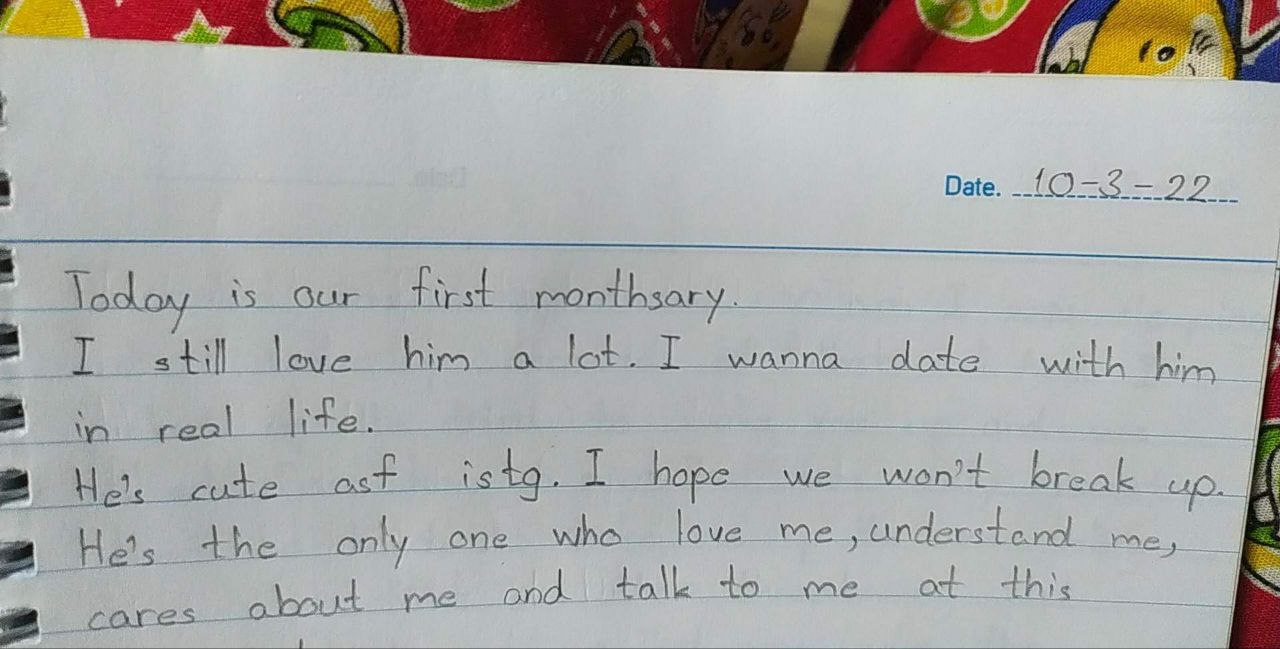 Date. 10-3-22
Today is our first monthsary.
I still love him a lot. I wanna date with him
in real life.
He's cute asf istg. I hope we won't break up.
He's the only one who love me, understand me,
cares about me and talk to me at this